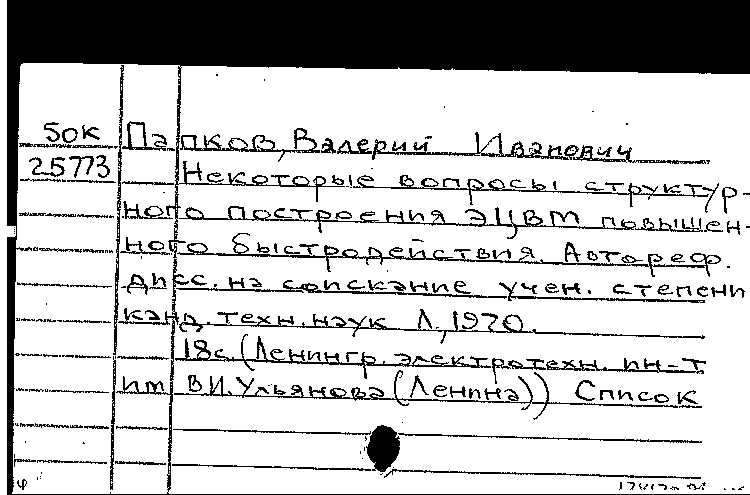 50К Папков, Валерий Иванович
25773 Некоторые вопросы структур-
ного построения ЭЦВМ повышен-
ного быстродействия. Автореф.
дисс. на соискание учен. степени
канд. техн. наук Л., 1970.
18с. (Ленингр. электротехн. ин-т
им В.И. Ульянова (Ленина)) Список